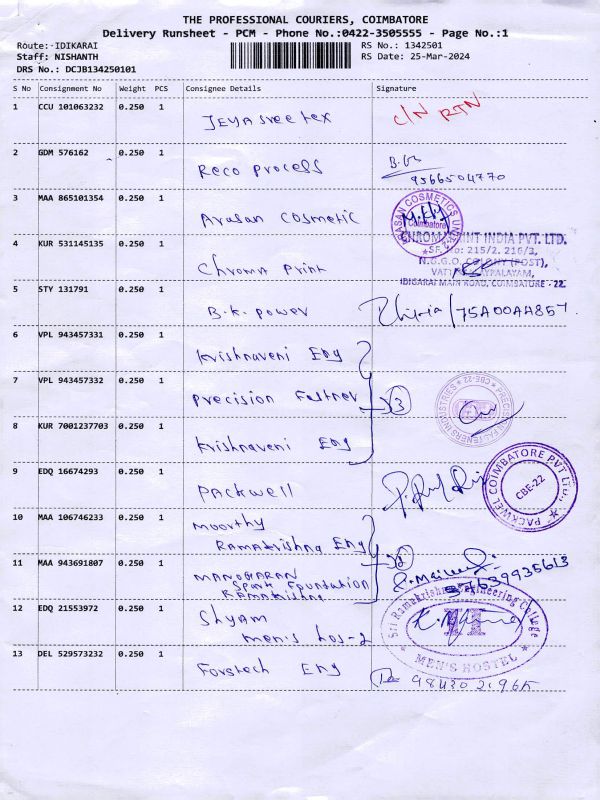 THE PROFESSIONAL COURIERS, COIMBATORE
Delivery Runsheet - PCM - Phone No.:0422-3505555 - Page No.:1
Route: IDIKARAI
RS No.: 1342501
Staff: NISHANTH
RS Date: 25-Mar-2024
DRS No.: DCJB134250101
S No Consignment No Weight PCS Consignee Details Signature
1 CCU 101063232 0.250 1 JEYA Sree tex C/N RTN
2 GDM 576162 0.250 1 Reco process
9566504770
3 MAA 865101354 0.250 1 Arasan Cosmetic
ARASAN COSMETICS UNIT
Coimbatore
4 KUR 531145135 0.250 1 Chroma print
CHROMAPRINT INDIA PVT. LTD.
SF. No: 215/2. 216/3,
N.G.G.O. COLONY (POST),
IDIGARAI MAIN ROAD, COIMBATORE - 22.
5 STY 131791 0.250 1 B.K. power
6 VPL 943457331 0.250 1 Krishnaveni Eng
7 VPL 943457332 0.250 1 Precision Fastner 3
PRECISION FASTENERS INDUSTRIES ★ CBE-22. ★
8 KUR 7001237703 0.250 1 Krishnaveni Eng
9 EDQ 16674293 0.250 1 Packwell
PACKWEL COIMBATORE PVT LTD., ★
CBE-22
10 MAA 106746233 0.250 1 Moorthy
Ramakrishna Eng
11 MAA 943691807 0.250 1 MANOGARAN
Spark Foundation
Ramakrishna
7639935613
12 EDQ 21553972 0.250 1 Shyam
men's hos-2
Sri Ramakrishna Engineering College
II
★ MEN'S HOSTEL ★
13 DEL 529573232 0.250 1 Forstech Eng